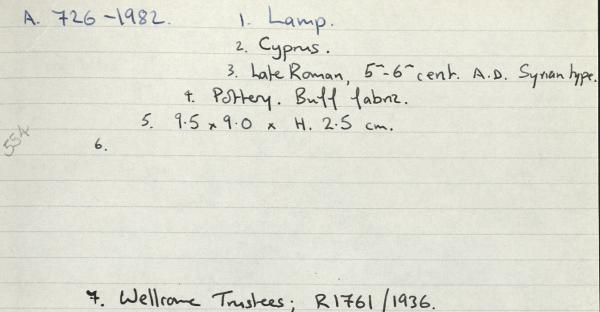 A. 726-1982. 1. Lamp.
2. Cyprus.
3. Late Roman, 5th-6th cent. A.D. Syrian type.
4. Pottery. Buff fabric.
5. 9.5 x 9.0 x H. 2.5 cm.
554
6.
7. Wellcome Trustees; R1761/1936.